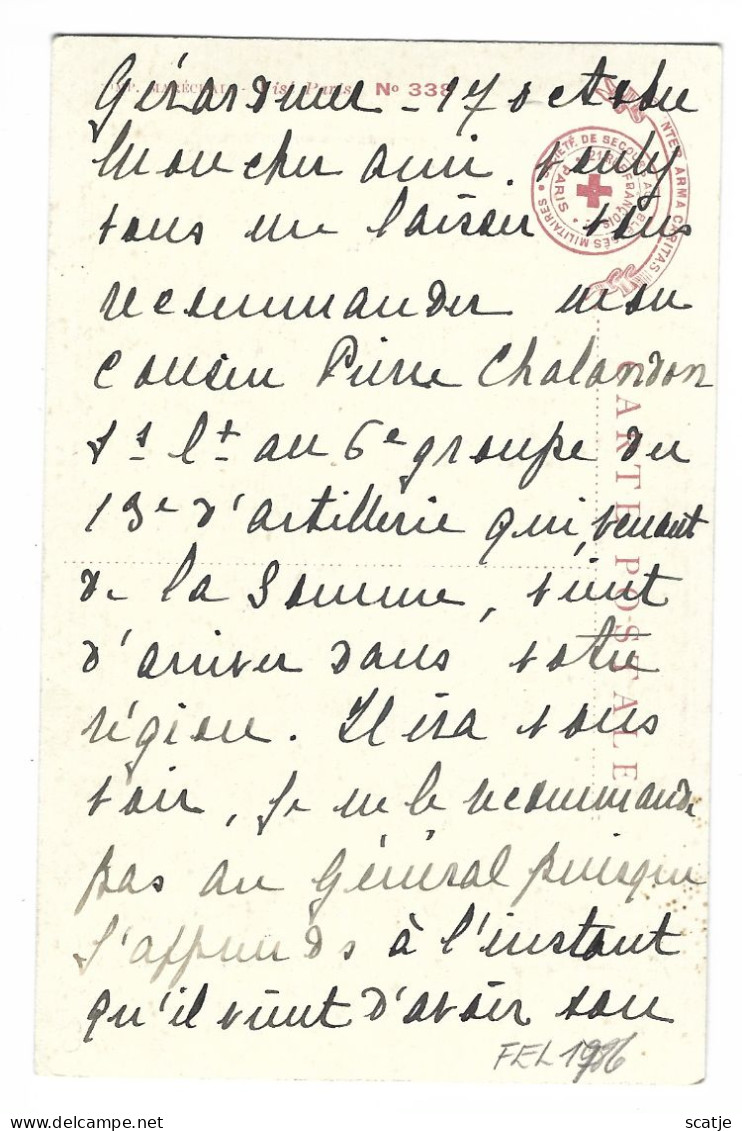 IMP. MARÉCHAL - Visé Paris Nº 338
INTER ARMA CARITAS
SOCIÉTÉ DE SECOURS AUX BLESSÉS MILITAIRES
21 RUE FRANÇOIS PARIS
CARTE POSTALE
Gérardmer - 17 octobre
Mon cher ami. 
vous me laisser vous
recommander mon
cousin Pierre Chalandon
Ss Lt au 6e groupe du
13e d'artillerie qui, venant
de la Somme, vient
d'arriver dans votre
région. Il ira vous
voir, Je ne le recommande
pas au Général puisque
j'apprends à l'instant
qu'il vient d'avoir son
FEL
scatje